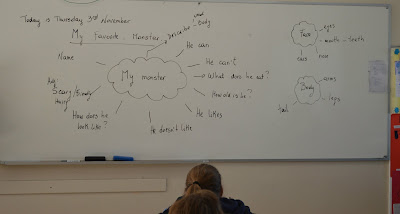 Today is Thursday 3rd November
My Favorite Monster
Describe
head
Body
He can
He can't
What does he eat?
How old is he?
He likes
He doesn't like
How does he
look like?
Adj
Scary/friendly
Hairy
Name
My
monster
Face
eyes
mouth - teeth
nose
ears
Body
arms
legs